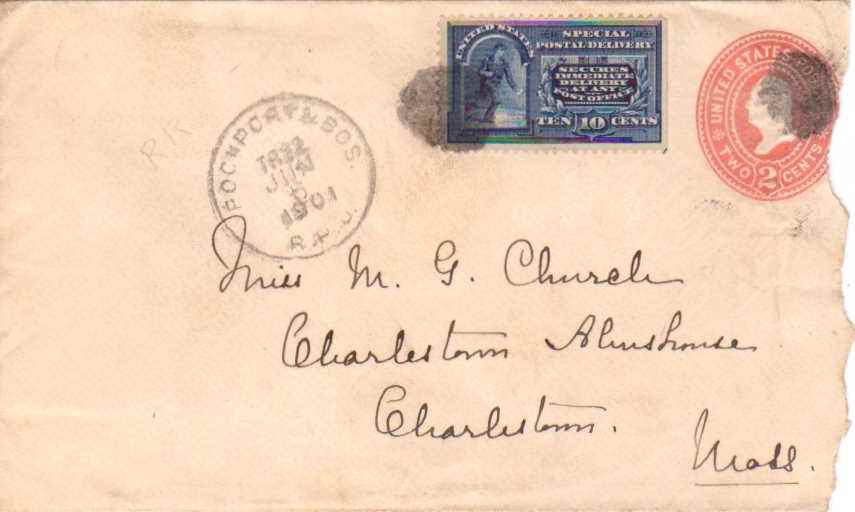 UNITED STATES
SPECIAL
POSTAL DELIVERY
SECURES
IMMEDIATE
DELIVERY
AT ANY
POST OFFICE
TEN 10 CENTS
UNITED STATES
TWO 2 CENTS
ROCKPORT & BOS.
TR 22
JUN
1901
R.P.O.
Miss M. G. Church
Charlestown Almshouse
Charlestown.
Mass.